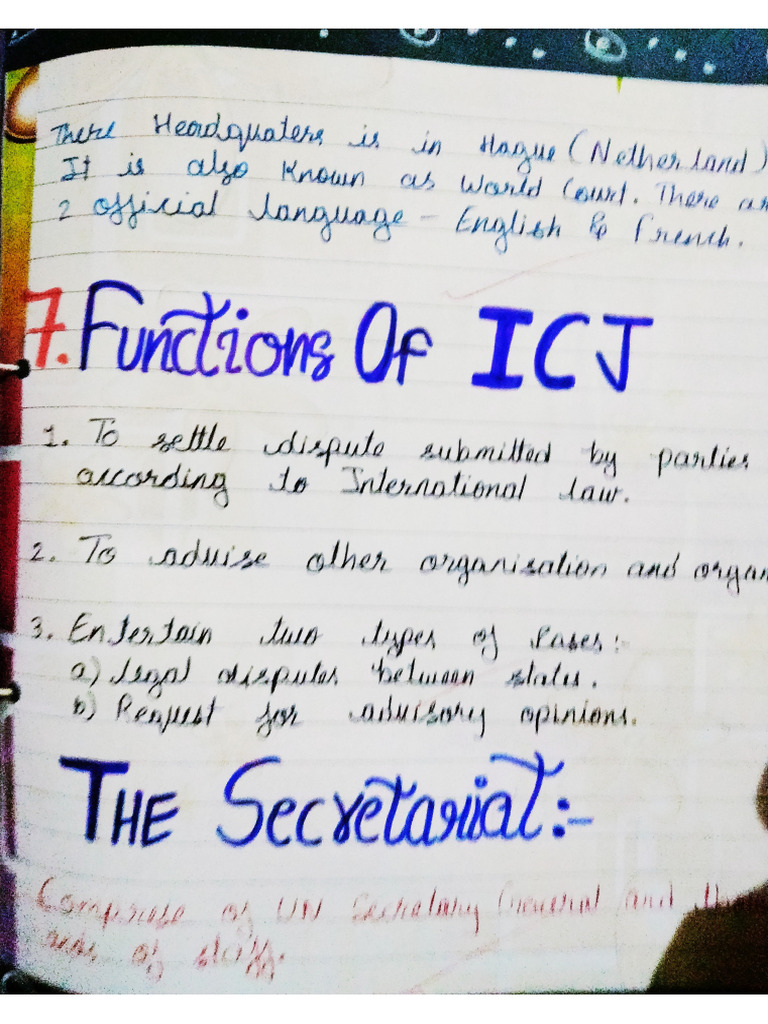 There Headquaters is in Hague (Netherland)
It is also known as World Court. There are
2 official language - English & French.
7. Functions Of ICJ
1. To settle dispute submitted by parties
according to International law.
2. To advise other organisation and organ
3. Entertain two types of cases:-
a) legal disputes between states.
b) Request for advisory opinions.
THE Secretariat:-
Comprise of UN Secretary General and
of staff.